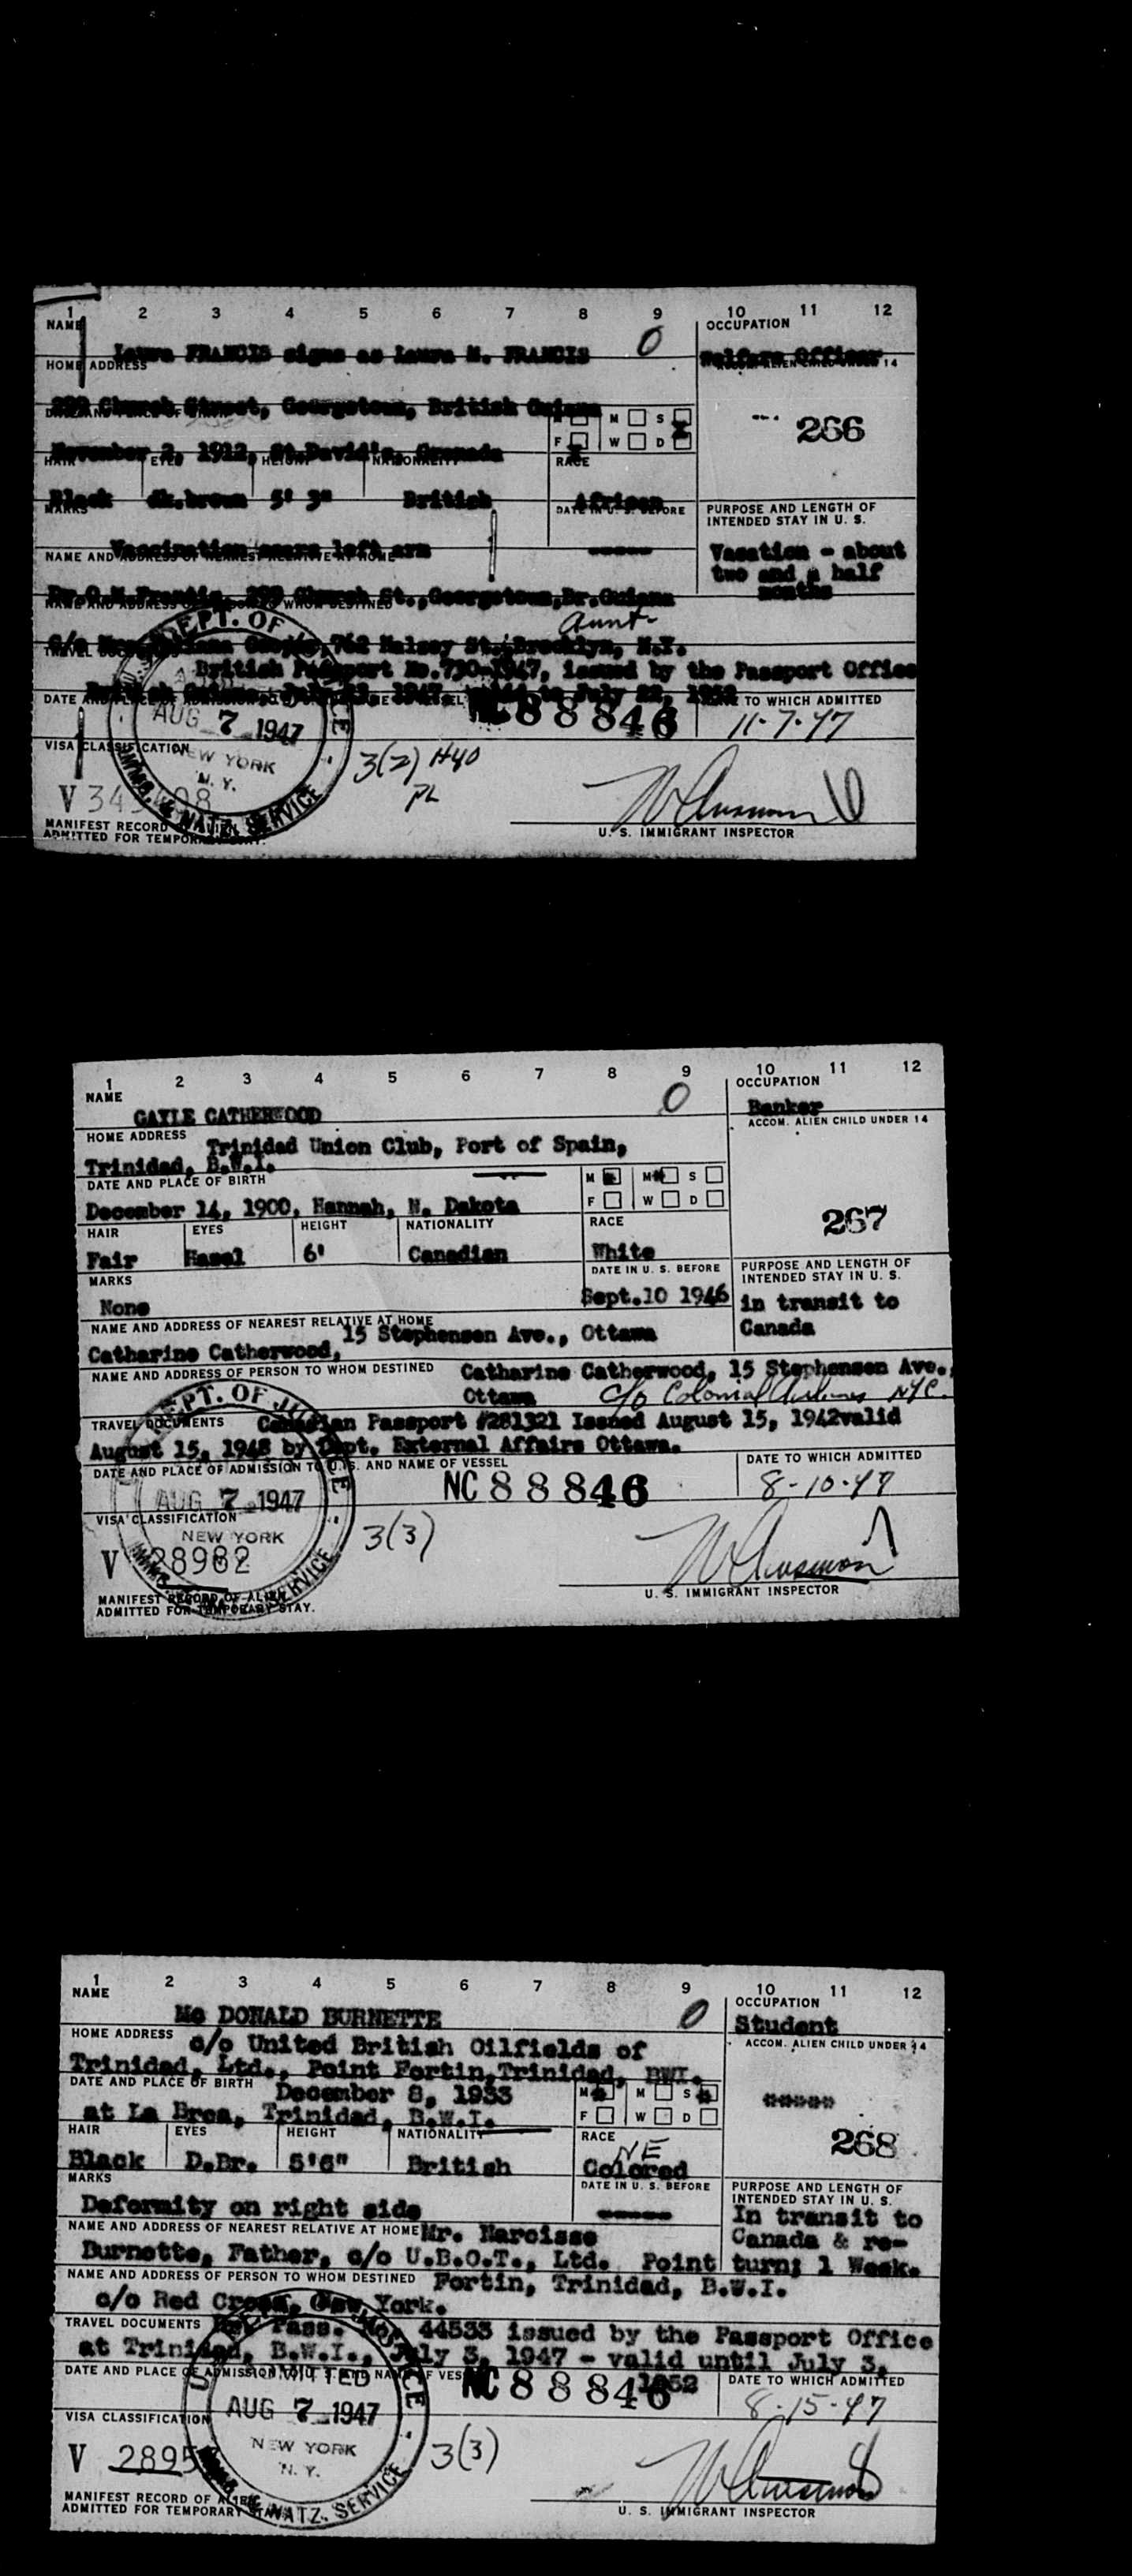 1 2 3 4 5 6 7 8 9 10 11 12
NAME OCCUPATION
Laura FRANCIS signs as Laura M. FRANCIS 0 Welfare Officer
HOME ADDRESS
Church Street, Georgetown, British Guiana
M S
266
F W D
November 2, 1912, St.David's, Grenada
RACE
Black dk.brown 5' 3" British African
MARKS PURPOSE AND LENGTH OF
INTENDED STAY IN U. S.
Vaccination scars left arm Vacation - about
two and a half
months
Church St., Georgetown, Br.Guiana
Aunt-
762 Halsey St., Brooklyn, N.Y.
British Passport No. 730-1947, issued by the Passport Office
British Guiana, July 1947
DATE TO WHICH ADMITTED
88846 11-7-47
DEPT. OF
AUG 7 1947
NEW YORK
N. Y.
IMMG. & NATZ. SERVICE
VISA CLASSIFICATION
3(2) H40
PL
V 34
MANIFEST RECORD OF ALIEN
ADMITTED FOR TEMPORARY
U. S. IMMIGRANT INSPECTOR
1 2 3 4 5 6 7 8 9 10 11 12
NAME OCCUPATION
GAYLE CATHERWOOD 0 Banker
HOME ADDRESS ACCOM. ALIEN CHILD UNDER 14
Trinidad Union Club, Port of Spain,
Trinidad, B.W.I.
DATE AND PLACE OF BIRTH M M S
F W D
December 14, 1900, Hannah, N. Dakota
267
HAIR EYES HEIGHT NATIONALITY RACE
Fair Hazel 6' Canadian White
MARKS DATE IN U. S. BEFORE PURPOSE AND LENGTH OF
INTENDED STAY IN U. S.
None Sept.10 1946 in transit to
Canada
NAME AND ADDRESS OF NEAREST RELATIVE AT HOME
15 Stephensen Ave., Ottawa
Catharine Catherwood,
NAME AND ADDRESS OF PERSON TO WHOM DESTINED Catharine Catherwood, 15 Stephensen Ave.,
Ottawa c/o Colonial Airlines NYC.
TRAVEL DOCUMENTS Canadian Passport #281321 Issued August 15, 1942valid
August 15, 1948 by Dept. External Affairs Ottawa.
DATE AND PLACE OF ADMISSION TO U.S. AND NAME OF VESSEL DATE TO WHICH ADMITTED
NC 88846 8-10-47
AUG 7 1947
VISA CLASSIFICATION
NEW YORK
3(3)
V 28982
MANIFEST RECORD OF ALIEN
ADMITTED FOR TEMPORARY STAY.
U. S. IMMIGRANT INSPECTOR
1 2 3 4 5 6 7 8 9 10 11 12
NAME OCCUPATION
Mc DONALD BURNETTE 0 Student
HOME ADDRESS ACCOM. ALIEN CHILD UNDER 14
c/o United British Oilfields of
Trinidad, Ltd., Point Fortin,Trinidad, BWI.
DATE AND PLACE OF BIRTH M M S
December 8, 1933
at La Brea, Trinidad, B.W.I. F W D
268
HAIR EYES HEIGHT NATIONALITY RACE
NE
Black D.Br. 5'6" British Colored
MARKS DATE IN U. S. BEFORE PURPOSE AND LENGTH OF
INTENDED STAY IN U. S.
Deformity on right side In transit to
NAME AND ADDRESS OF NEAREST RELATIVE AT HOME Mr. Narcisse Canada & re-
Burnette, Father, c/o U.B.O.T., Ltd. Point turn; 1 Week.
NAME AND ADDRESS OF PERSON TO WHOM DESTINED Fortin, Trinidad, B.W.I.
c/o Red Cross, New York.
TRAVEL DOCUMENTS Pass. No. 44533 issued by the Passport Office
at Trinidad, B.W.I., July 3, 1947 - valid until July 3,
1952
DATE AND PLACE OF ADMISSION DATE TO WHICH ADMITTED
NC 88846 8-15-47
ADMITTED
AUG 7 1947
NEW YORK
N. Y.
NATZ. SERVICE
VISA CLASSIFICATION
3(3)
V 2895
MANIFEST RECORD OF ALIEN
ADMITTED FOR TEMPORARY
U. S. IMMIGRANT INSPECTOR